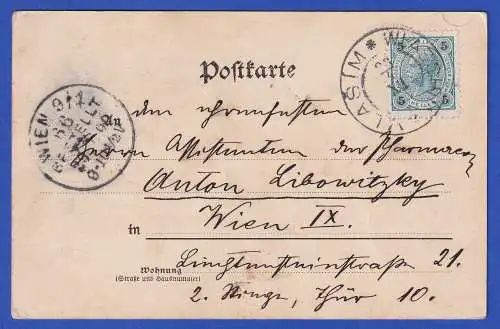 Postkarte
An dem ehrenfesten
Herrn Assistenten der Pharmacie
Anton Libowitzky
in Wien IX.
Wohnung
(Straße und Hausnummer)
Liechtensteinstraße 21.
2. Stiege, Thür 10.
WLAŠIM
VLASIM
5 5
5 5
WIEN 9/4
BESTELLT